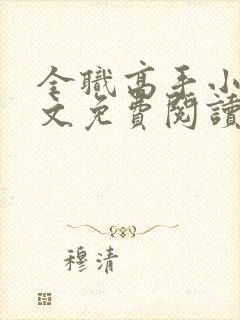 全職高手小
文免費閱讀
穆清